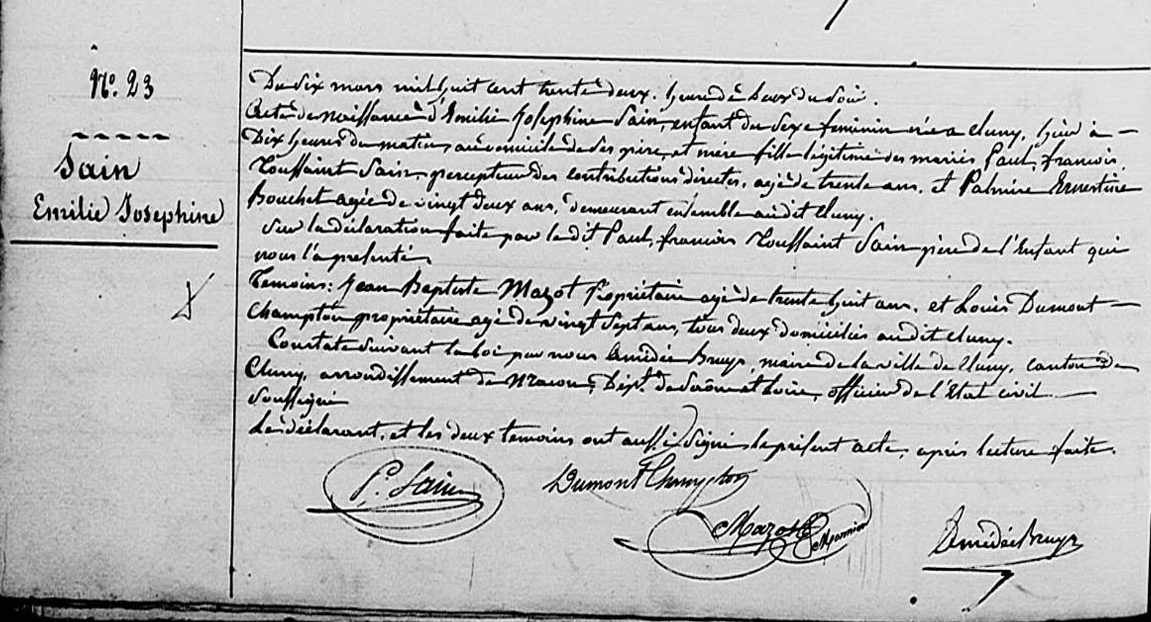 N.° 23
Sain
Emilie Josephine
Du Six mars mil huit cent trente deux. heure de deux du Soir.
Acte de naissance d'Emilie Josephine Sain, enfant du Sexe feminin née a Cluny, hier à
Dix heures du matin, au domicile de Ses père et mère fille légitime des mariés Paul, francois,
Toussaint Sain, percepteur des Contributions directes, agé de trente ans, et Palmire Ernestine
Bouchet agée de vingt deux ans, demeurant ensemble audit Cluny.
Sur la déclaration faite par le dit Paul, francois Toussaint Sain père de l'Enfant qui
nous l'a présenté,
Temoins: Jean Baptiste Mazot Propriétaire agé de trente huit ans, et Louis Dumont
Champton propriétaire agé de vingt Sept ans, tous deux domiciliés audit Cluny.
Constaté Suivant la loi par nous Amédée Bruys, maire de la ville de Cluny, canton de
Cluny, arrondissement de Macon, Dépt. de Saône et Loire, officier de l'Etat civil
Soussigné
Le déclarant, et les deux temoins ont aussi Signé le présent acte, après lecture faite.
P. Sain
Dumont Champton
Mazot
AmédéeBruys